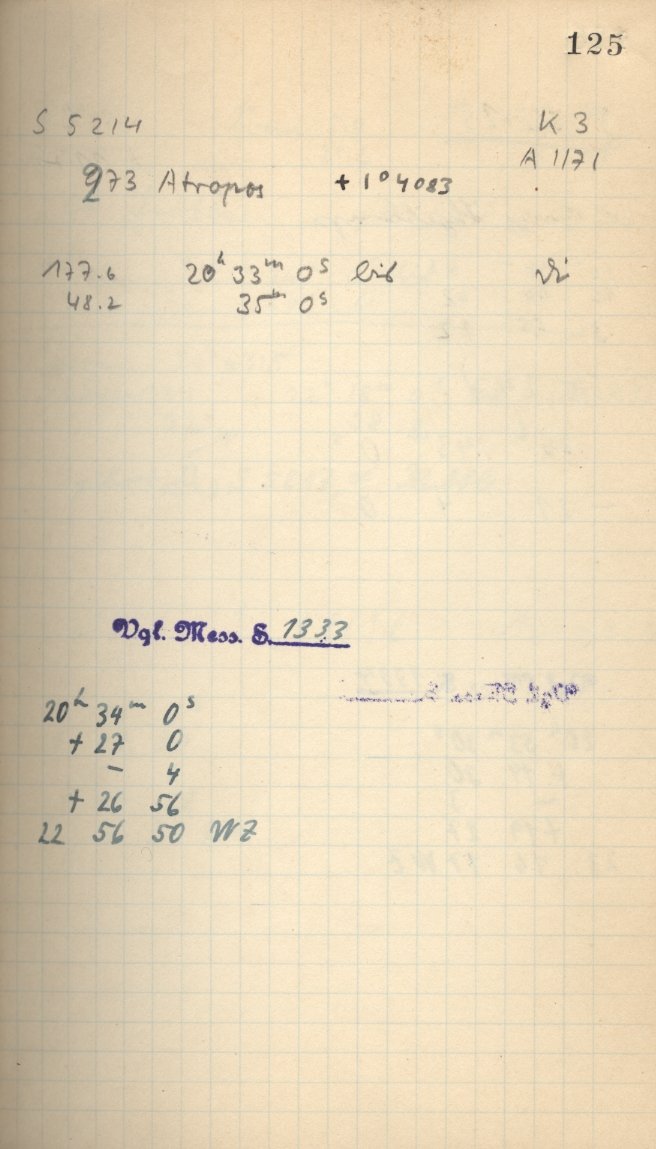 125
S 5214 K 3
A 1171
273 Atropos +1° 4083
177.6 20h 33m 0s bis
48.2 35m 0s
Vgl. Mess. S. 1333
20h 34m 0s
+ 27 0
- 4
+ 26 56
22 56 50 WZ